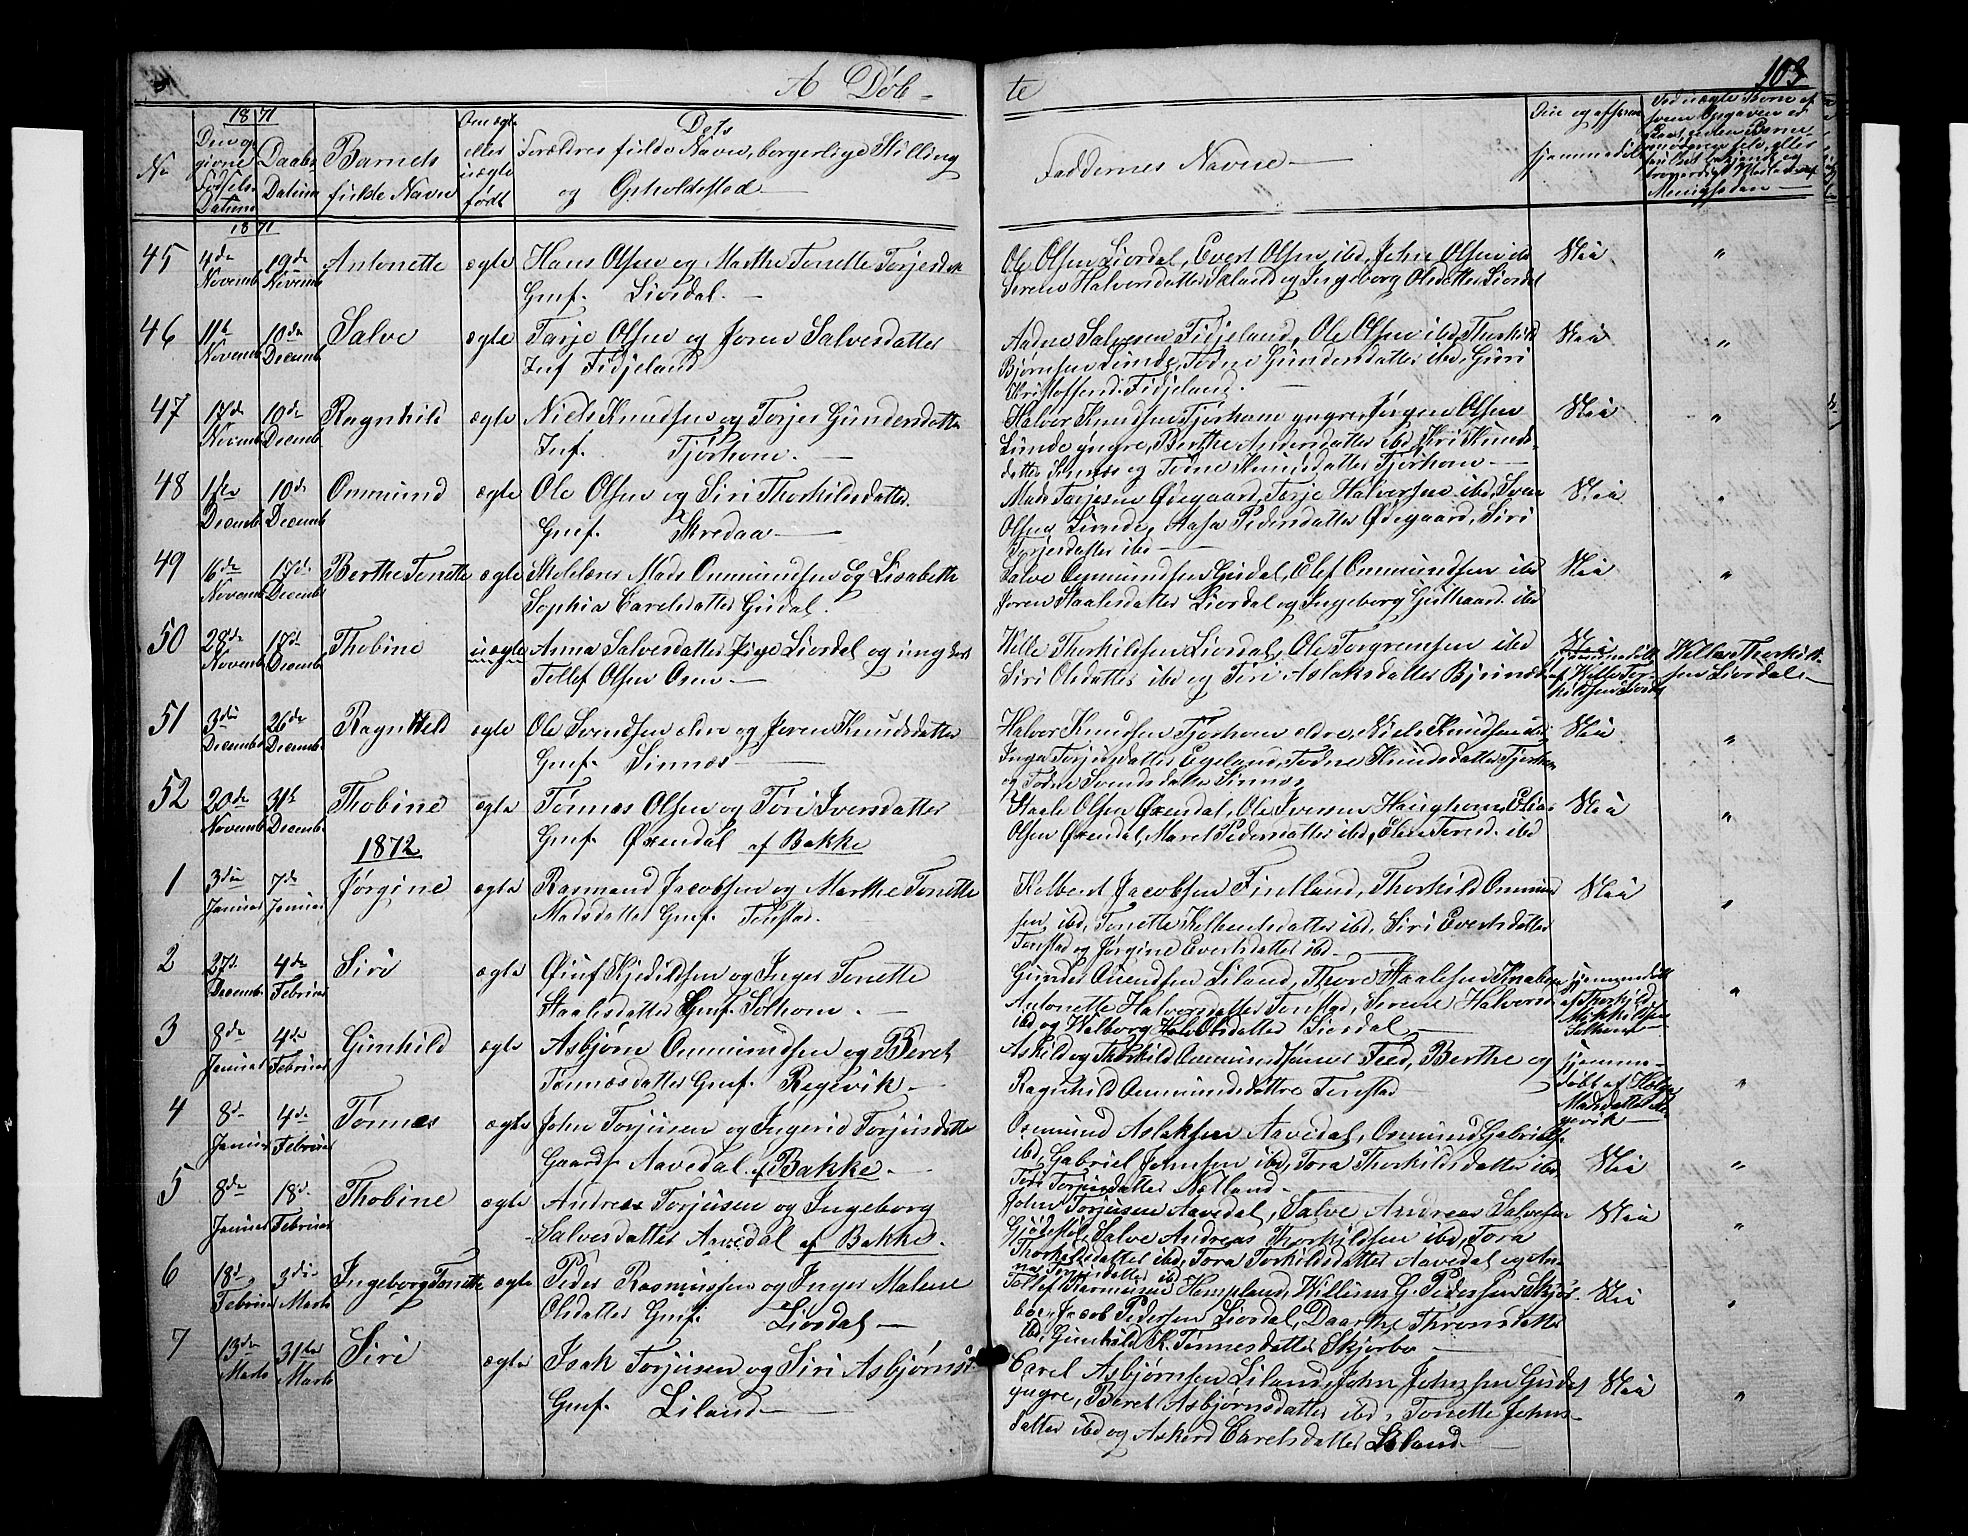 A Døb- te 103
1871
No
Den og givne Fødsels Datum
Daabs Datum
Barnets fulde Navn
Om ægte eller uægte født
Dets Forældres fulde Navn, borgerlige Stilling og Opholdssted
Faddernes Navne
hjemmedøbt
Menigheden
1871
45 4de Novemb 19de Novemb Antonette ægte Hans Olsen og Marthe Tonette Torjesdtr
Gmf. Liordal.
Ole Olsen Liordal, Evert Olsen ibd, John Olsen ibd
Serene Halvorsdatter Skland og Ingeborg Olsdatter Liordal
Nei "
46 11te Novemb 10de Decemb Salve ægte Tarje Olsen og Joren Salvesdatter
Inf Fidjeland
Aadne Salvesen Fidjeland, Ole Olsen ibd, Thorkild
Bjørnsen Linde, Todne Gundersdatter ibd, Guri
Kristoffersd. Fidjeland.
Nei "
47 17de Novemb 10de Decemb Ragnhild ægte Niels Knudsen og Torjer Gundersdatter
Inf. Tjørhom.
Halvor Knudsen Tjørhom yngre, Jørgen Olsen
Linde yngre, Berthe Andersdatter ibd, Siri Knuds-
datter Sinnæs og Todne Knudsdatter Tjørhom
Nei "
48 1ste Decemb 10de Decemb Onmund ægte Ole Olsen og Siri Thorkildsdatter.
Gmf. Skredaa
Mads Torjesen Ødegaard, Torje Halversen ibd, Sven
Olsen Linde, Aasa Pedersdatter Ødegaard, Siri
Torjesdatter ibd
Nei "
49 16de Novemb 17de Decemb Berthe Tonette ægte Skolelærer Mads Onmundsen og Lisabeth
Sophia Carlsdatter Gusdal.
Salve Onmundsen Gusdal, Elef Onmundsen ibd
Joren Staalesdatter Liordal og Ingeborg Gulhaard. ibd
Nei "
50 28de Novemb 17de Decemb Thobine uægte Anna Salvesdatter Pige Liordal og ungkarl
Tollef Olsen Osen
Helle Thorkildsen Liordal, Ole Torgrensen ibd
Siri Olsdatter ibd og Siri Aslaksdatter Bjunes
Nei
hjemmedøbt af Helle Tor-
kildsen Liordal
Helle Thorkild-
sen Liordal
51 3die Decemb 26de Decemb Ragnhild ægte Ole Svendsen ældre og Joren Knudsdatter
Gmf. Sinnæs
Halvor Knudsen Tjørhom ældre, Niels Knudsen ibd
Inga Torjusdatter Egeland, Todne Knudsdatter Tjørhom
og Todne Svendsdatter Sinnæs
Nei "
52 20de Novemb 31te Decemb Thobine ægte Tønnes Olsen og Tori Iversdatter
Gmf. Øxendal af Bakke
Staale Olsen Øxendal, Ole Iversen Haughom, Elias
Olsen Øxendal, Maret Pedersdatter ibd, Elen Torsd. ibd
Nei "
1872
1 3die Januar 7de Januar Jørgine ægte Rasmund Jacobsen og Marthe Tonette
Madsdatter Gmf. Tonstad.
Kolbent Jacobsen Fintland, Thorkild Onmund
sen ibd, Tonette Kolbentsdatter ibd, Siri Evertsdatter
Tonstad og Jørgine Evertsdatter ibd
Nei "
2 27de Decemb. 4de Februar Siri ægte Øiuf Kjedilsen og Inger Tonette
Staalesdatter Gmf. Solhom.
Gunder Omundsen Liland, Thore Staalesen Knaben
Antonette Halversdatter Tonstad, Serene Halversd
ibd og Walborg Olsdatter Liordal
hjemmedøbt
af Thorkild
Mikkildsen
Solhom
"
3 8de Januar 4de Februar Gunhild ægte Asbjørn Onmundsen og Beret
Tønnesdatter Gmf. Regevik
Askild og Thorkild Onmundsønner Tved, Berthe og
Ragnhild Onmundsdøttre Tonstad
hjemme-
døbt af
Madsdatter Re-
gevik
"
4 8de Januar 4de Februar Tønnes ægte John Torjusen og Ingerid Torjusdatter
Gaardf. Aavedal af Bakke.
Osmund Aslaksen Aavedal, Osmund Gabriels.
ibd, Gabriel Johnsen ibd, Tora Thorkildsdatter ibd,
Siri Torjusdatter Netland
Nei "
5 8de Januar 18de Februar Thobine ægte Andreas Torjusen og Ingeborg
Salvesdatter Aavedal af Bakke.
John Torjusen Aavedal, Salve Andreas Salvesen
Gjødestøl, Salve Andreas Thorkildsen ibd, Tora
Thorkildsdatter ibd, Tora Torkildsdatter Aavedal og An-
na Torjusdatter ibd
Nei "
6 18de Februar 3die Marts Ingeborg Tonette ægte Peder Rasmussen og Inger Malene
Olsdatter Gmf. Liordal
Tollef Rasmussen Hompland, Willum G. Pedersen Skjør-
boe, Jacob Pedersen Liordal, Daarthe Thronsdatter
ibd, Gunhild K. Tønnesdatter Skjørbo
Nei "
7 13de Marts 31te Marts Siri ægte Isak Torjusen og Siri Asbjørnsd.
Gmf. Liland
Carel Asbjørnsen Liland, John Johnsen Gusdal
yngre, Beret Asbjørnsdatter ibd, Tonette Johns-
datter ibd og Askerd Carelsdatter Liland
Nei "